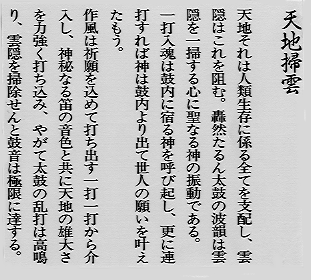 天地掃雲
天地それは人類生存に係る全てを支配し、雲
隠はこれを阻む。轟然たるん太鼓の波韻は雲
隠を一掃する心に聖なる神の振動である。
一打入魂は鼓内に宿る神を呼び起し、更に連
打すれば神は鼓内より出て世人の願いを叶え
たもう。
作風は祈願を込めて打ち出す一打一打から介
入し、神秘なる笛の音色と共に天地の雄大さ
を力強く打ち込み、やがて太鼓の乱打は高鳴
り、雲隠を掃除せんと鼓音は極限に達する。